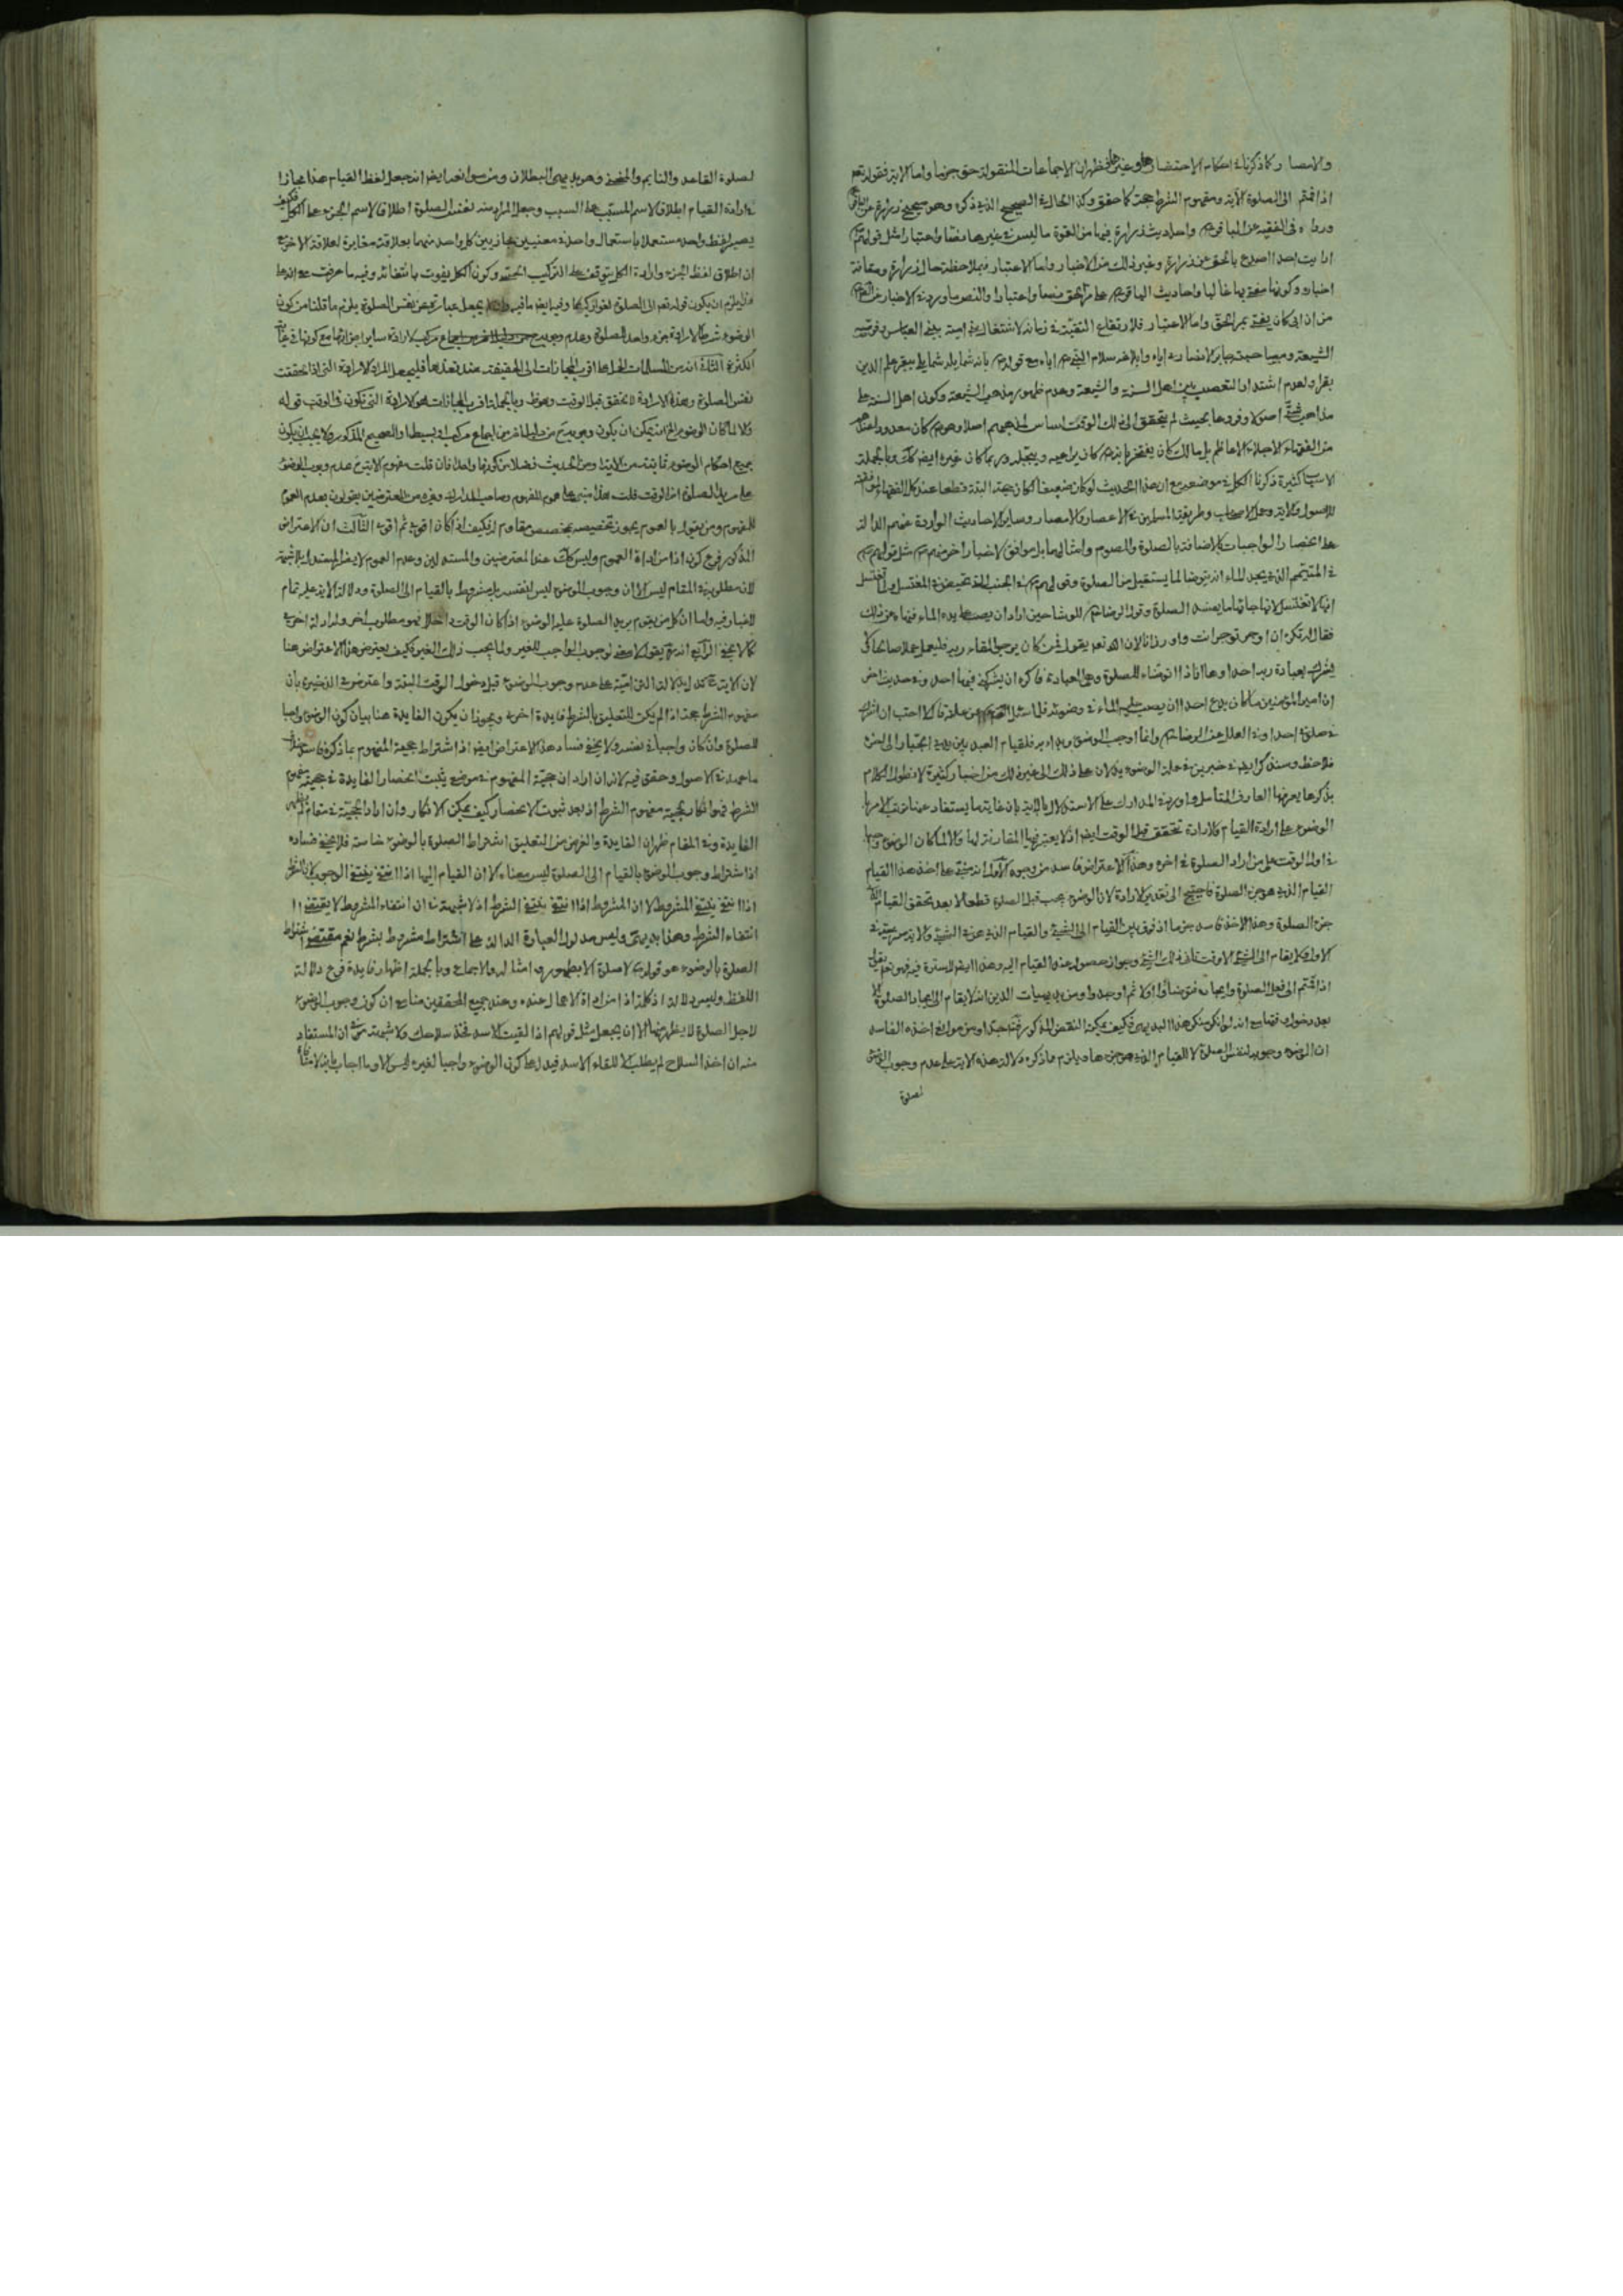 والامصار كما ذكرنا في احكام الاحتضار
اذا قمتم الى الصلوة الآية ومفهوم الشرط حجة كما حقق وكذا الحال في الصحيح الذي ذكره وهو صحيح زرارة عن الباقر
ورواه في الفقيه عن الباقر واحاديث زرارة فيها من القوة ما ليس في غيرها مضافا واعتبارا مثل قولهم
ما رايت احدا اصدع بالحق من زرارة وغير ذلك من الاخبار واما الاعتبار فبملاحظة حال زرارة ومتانة
اخباره وكونها مفتى بها غالبا واحاديث الباقر
من ان ابي كان يفتي بمر الحق واما الاعتبار فلارتفاع التقية في زمانه لاشتغال بني امية ببني العباس
الشيعة ومصاحبة جابر الانصاري اياه وابلاغه سلام النبي اياه مع قوله بانه شمايله شمايلي يبقر علم الدين
بقرا ولعدم اشتداد التعصب بين اهل السنة والشيعة وعدم ظهور مذهب الشيعة وكون اهل السنة على
مذاهب شتى اصولا وفروعا بحيث لم يتحقق الى ذلك الوقت اساس لمذهبهم اصلا وهو كان معدودا عندهم
من الفقهاء الاجلاء الاعاظم بل مالك كان يفتخر بانه كان يراجعه ويبجله وربما كان غيره ايضا كك وبالجملة
الاسباب كثيرة ذكرنا الكل في موضعه مع ان هذا الحديث لو كان ضعيفا لكان حجة البتة قطعا عند كل الفقهاء لموافقته
للاصول والآية وعمل الاصحاب وطريقة المسلمين في الاعصار والامصار وساير الاحاديث الواردة عنهم الدالة
على انحصار الواجبات بالاضافة بالصلوة والصوم وامثالهما بل موافق لاخبار اخر منهم مثل قولهم
في المتيمم الذي يجد الماء انه يتوضا لما يستقبل من الصلوة وقولهم في الجنب التي تحيض في المغتسل
انها لا تغتسل لانها جائها ما يفسد الصلوة وقول الرضا للوشا حين اراد ان يصب على يده الماء فنهاه عن ذلك
فقال له تكره ان اوجر تؤجر انت واوزر انا لان الله تعالى يقول فمن كان يرجو لقاء ربه فليعمل عملا صالحا ولا
يشرك بعبادة ربه احدا وها انا ذا اتوضاء للصلوة وهي العبادة فاكره ان يشركني فيها احد وفي حديث اخر
ان امير المؤمنين ما كان يدع احدا ان يصب عليه الماء في وضوئه فلما سئل عن علته قال لا احب ان اشرك
في صلوتي احدا وفي العلل عن الرضا وانما اوجب الوضوء وبدئ به فلقيام العبد بين يدي الجبار الى اخره
فلاحظ وسنذكر ايضا خبرين في علة الوضوء يدلان على ذلك الى غير ذلك من اخبار كثيرة لا نطول الكلام
بذكرها يعرفها العارف المتأمل واورد في المدارك على الاستدلال بالآية بان غاية ما يستفاد منها ترتب الامر
بالوضوء على ارادة القيام والارادة تتحقق قبل الوقت ايضا اذ لا يعتبر فيها المقارنة لها والا لما كان الوضوء واجبا
في اول الوقت على من اراد الصلوة في اخره وهذا الاعتراض فاسد من وجوه الاول انه مبني على اخذ هذا القيام
القيام الذي هو جزء الصلوة فاحتيج الى تقدير الارادة لان الوضوء يجب قبل الصلوة قطعا لا بعد تحقق القيام الذي
جزء الصلوة وهذا الاخذ فاسد جزما اذ فرق بين القيام الى الشيء والقيام الذي هو في الشيء
الاول ولا يقام الى الشيء الا وقت تأتي ذلك الشيء وجواز حصول هذا القيام اليه وهذا ايضا لا سترة فيه فهو تعالى يقول
اذا قمتم الى فعل الصلوة وايجاده فتوضأوا اولا ثم اوجدوا ومن بديهيات الدين انه لا يقام الى ايجاد الصلوة الا
بعد دخول وقتها مع انه لو انكر منكر هذا البديهي فكيف يمكنه النقض المذكور
ان الوضوء وجوبه لنفس الصلوة لا للقيام الذي هو جزءها فيلزم ما ذكره دلالة هذه الآية على عدم وجوب الوضوء
لصلوة
لصلوة القاعد والنايم والمنحني وهو بديهي البطلان ومن سوانحه ايضا انه جعل لفظ القيام هذا مجازا
في ارادة القيام اطلاقا لاسم المسبب على السبب وجعل المراد منه نفس الصلوة اطلاقا لاسم الجزء على الكل فكيف
يصير لفظ واحد مستعملا باستعمال واحد في معنيين مجازيين كل واحد منهما بعلاقة مغايرة لعلاقة الاخر مع
ان اطلاق لفظ الجزء وارادة الكل يتوقف على التركيب الحقيقي وكون الكل يفوت بانتفائه وفيه ما عرفت مع انه على
هذا يلزم ان يكون قوله تعالى الى الصلوة لغوا ركيكا وفيه ايضا ما فيه يجعل عبارة عن نفس الصلوة يلزم ما قلنا من كون
الوضوء شرطا لارادة جزء واحد للصلوة وعدم وجوبه
الكثرة الثاني انه من المسلمات ان اقرب المجازات الى الحقيقة عند تعذرها فليجعل المراد الارادة التي اذا تحققت
نفس الصلوة وهذه الارادة لا تتحقق قبل الوقت وبالجملة اقرب المجازات هو الارادة التي تكون في الوقت قوله
والا لما كان الوضوء الخ انه يمكن ان يكون وجوبه من دليل خارج من اجماع مركب او بسيط او الصحيح المذكور ولا يجب ان يكون
جميع احكام الوضوء ثابتة من الآية او من الحديث فضلا من كونها واحدا فان قلت مفهوم الآية عدم وجوب الوضوء
على مريد الصلوة اخر الوقت قلت هذا مبني على عموم المفهوم وصاحب المدارك وغيره من المعترضين يقولون بعدم العموم
للمفهوم ومن يقول بالعموم يجوز تخصيصه بمخصص مقاوم له فكيف اذا كان اقوى ثم اقوى الثالث ان الاعتراض
المذكور فرع كون اذا من اداة العموم وليس كك عند المعترضين والمستدلين وعدم العموم لا يضر المستدل بلا شبهة
لان مطلوبه في المقام ليس الا ان وجوب الوضوء ليس لنفسه بل مشروط بالقيام الى الصلوة ودلالة الآية عليه تمام
لا غبار فيه واما ان كل من يقوم يريد الصلوة عليه الوضوء اذا كان الوقت داخلا فهو مطلوب اخر وله ادلة اخرى
كما لا يخفى الرابع انه يقول لا معنى لوجوب الواجب للغير ولما يجب ذلك الغير فكيف يعترض هذا الاعتراض هنا
لان الآية تدل دلالة التزامية على عدم وجوب الوضوء قبل دخول الوقت البتة واعترض في الذخيرة بان
مفهوم الشرط حجة اذا لم يكن للتعليق بالشرط فايدة اخرى ويجوز ان يكون الفايدة هنا بيان كون الوضوء واجبا
للصلوة وان كان واجبا في نفسه ولا يخفى فساد هذا الاعتراض ايضا اذ اشتراط حجية المفهوم بما ذكره فاسد على
ما مهد في الاصول وحقق فيه لانه ان اراد ان حجية المفهوم في موضع يثبت انحصار الفايدة في حجية مفهوم
الشرط فهو انكار لحجية مفهوم الشرط اذ بعد ثبوت الانحصار كيف يمكن الانكار وان اراد الحجية في مقام لم يظهر
الفايدة وفي المقام ظهر ان الفايدة والغرض من التعليق اشتراط الصلوة بالوضوء خاصة فلا يخفى فساده
اذ اشتراط وجوب الوضوء بالقيام الى الصلوة ليس معناه الا ان القيام اليها اذا انتفى ينتفي الوجوب لا ان الشرط
اذا انتفى ينتفي المشروط لا ان المشروط اذا انتفى ينتفي الشرط اذ لا شبهة في ان انتفاء المشروط لا يقتضي
انتفاء الشرط وهذا بديهي وليس مدلول العبارة الدالة على اشتراط مشروط بشرط نعم مقتضى اشتراط
الصلوة بالوضوء هو قوله لا صلوة الا بطهور وامثاله والاجماع وبالجملة اظهار فايدة فرع دلالة
اللفظ وليس دلالة اذ كلمة اذا من اداة الاهمال عنده وعند جميع المحققين منا مع ان كون وجوب الوضوء
لاجل الصلوة لا يظهر منها الا ان يجعل مثل قولهم اذا لقيت الاسد فخذ سلاحك ولا شبهة في ان المستفاد
منه ان اخذ السلاح لم يطلب الا للقاء الاسد فيدل على كون الوضوء واجبا لغيره